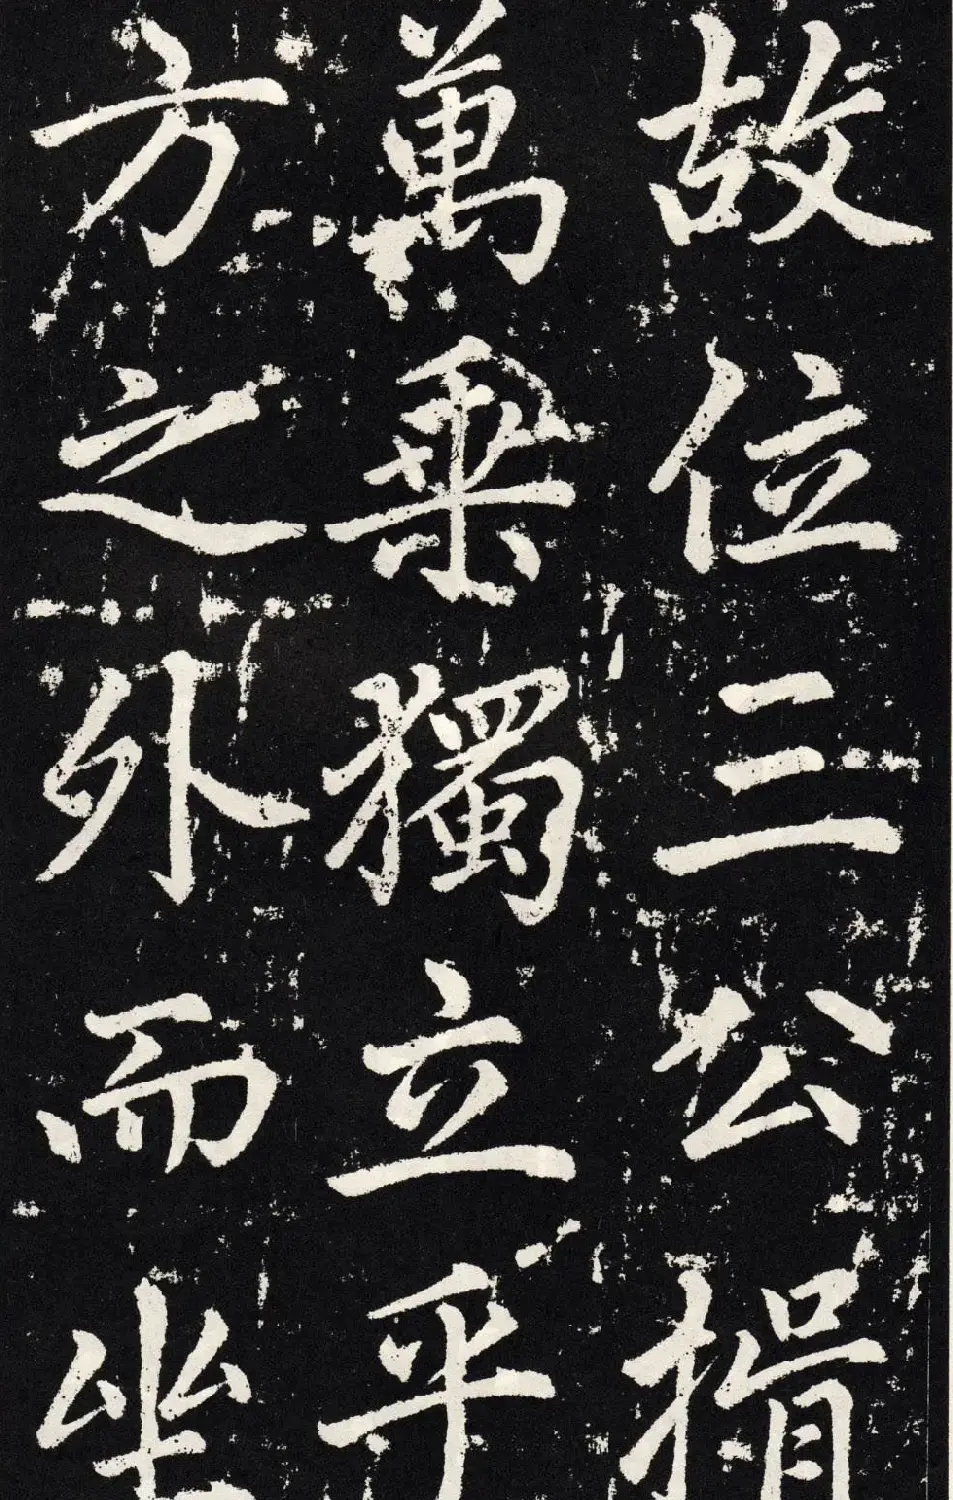 故位三公捐
萬乗獨立乎
方之外而坐